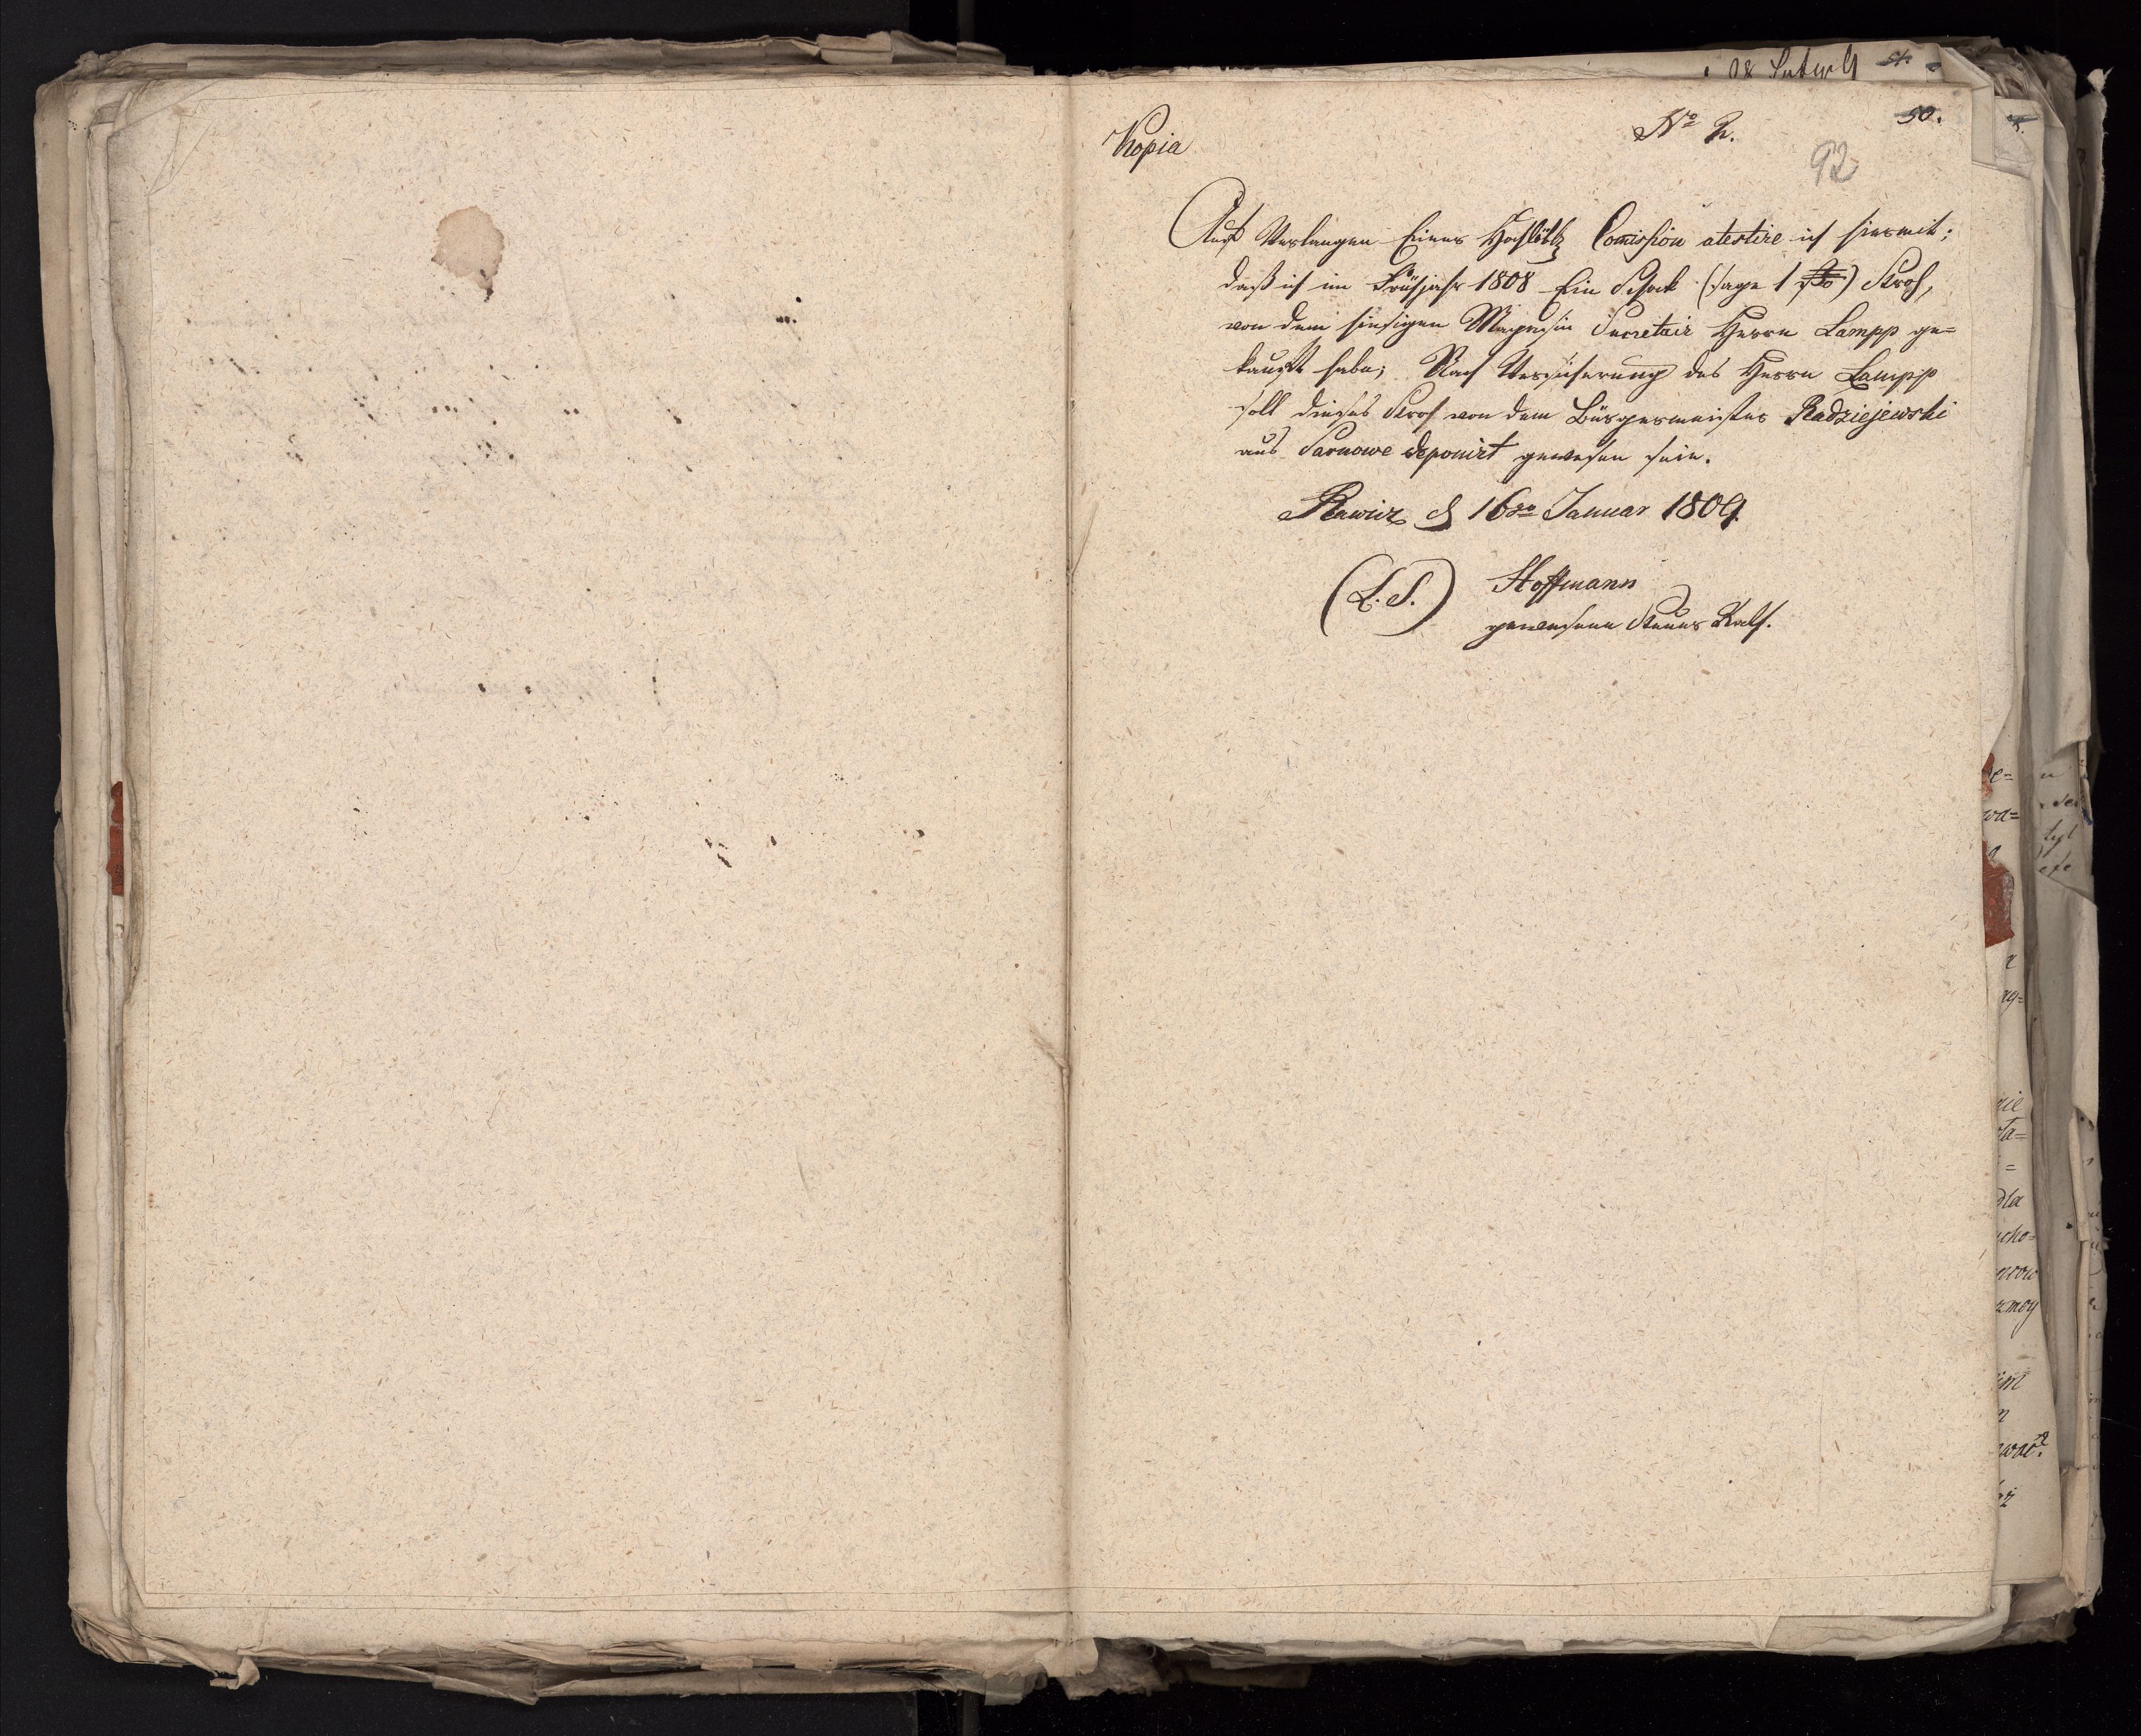 Kopia
No 2.
50.
92
Auf Verlangen Einer Hochlöbl Comission atestire ich hiermit;
daß ich im Frühjahr 1808 Ein Schock (sage 1 ) Stroh,
von dem hiesigen Magazin Secretair Herrn Lampp ge=
kauft habe; Nach Versicherung des Herrn Lampp
soll dieses Stroh von dem Bürgermeister Radziejewski
aus Sarnowe deponirt gewesen sein.
Rawicz d 16 Januar 1809.
(L. S.) Hoffmann
gewesener Steuer Rath.